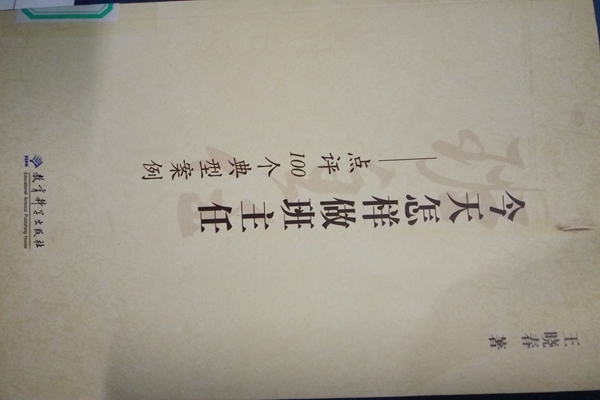 王晓春 著
今天怎样做班主任
——点评100个典型案例
教育科学出版社
Educational Science Publishing House